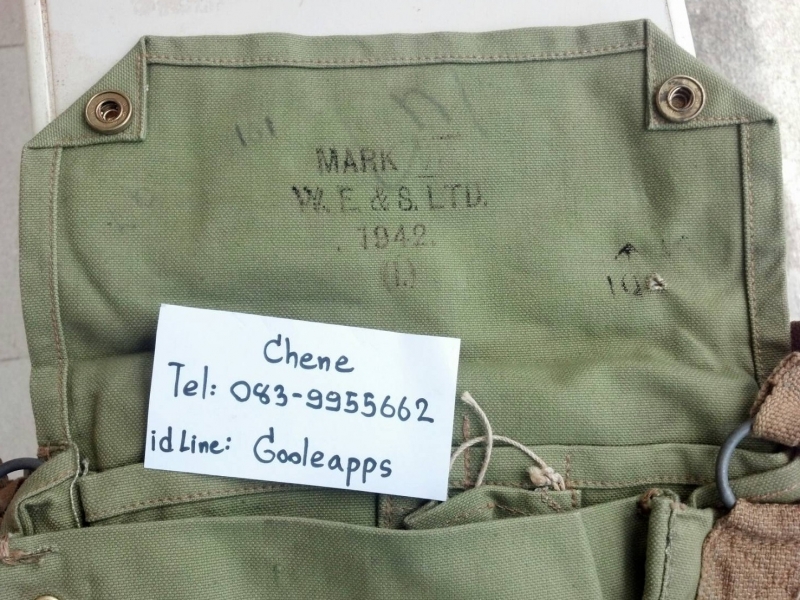 MARK VII
W. E. & S. LTD.
1942.
(I.)
Chene
Tel: 083-9955662
id Line: Gooleapps